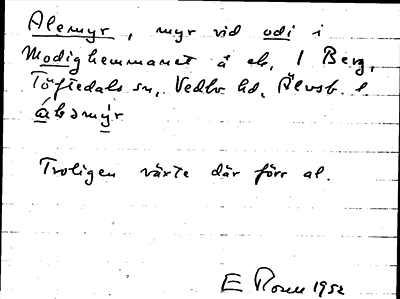 Alemyr, myr vid udi i
Modighemmanet å ek, 1 Berg,
Töftedals sn, Vedbo hd, Älvsb. l.
áləmy̨r
Troligen växte där förr al.
E Rosen 1952